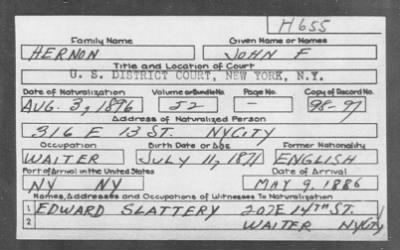 H655
Family Name Given Name or Names
HERNON JOHN F
Title and Location of Court
U. S. DISTRICT COURT, NEW YORK, N.Y.
Date of Naturalization Volume or Bundle No. Page No. Copy of Record No.
AUG. 3, 1896 52 - 98-97
Address of Naturalized Person
316 E 13 ST. NYCITY
Occupation Birth Date or Age Former Nationality
WAITER JULY 11, 1871 ENGLISH
Port of Arrival in the United States Date of Arrival
NY NY MAY 9, 1886
Names, Addresses and Occupations of Witnesses To Naturalization
1 EDWARD SLATTERY 207E 14TH ST.
2 WAITER NYCITY